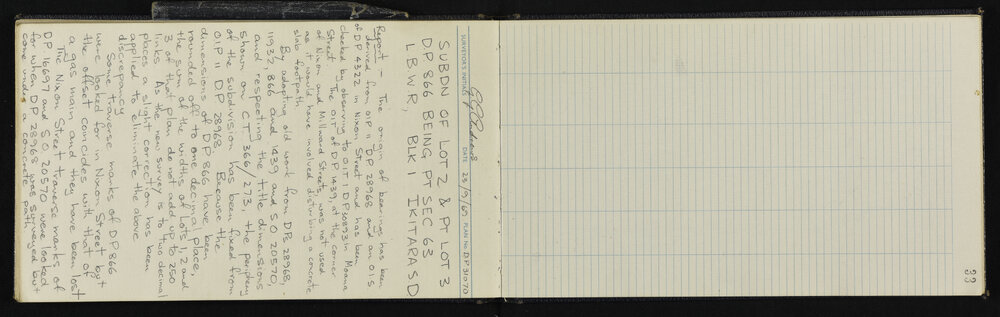 SURVEYOR'S INITIALS DATE 23/9/69 PLAN No. D.P. 31070
SUBDN OF LOT 2 & PT LOT 3
DP 866 BEING PT SEC 63
LBWR, BLK I IKITARA SD
Report — The origin of bearings has been
derived from OIP II DP 28968 and an OIS
of DP 4322 in Nixon Street and has been
checked by observing to OIT I DP 30893 in Moana
Street. The OIT of DP 1439, at the corner
of Nixon and Millward Streets, was not used
as it would have involved disturbing a concrete
slab footpath.
By adopting old work from DPs 28968,
11932, 866 and 1439 and SO 20570,
and respecting the title dimensions
shown on CT 366/273, the periphery
of the subdivision has been fixed from
OIP II DP 28968. Because the
dimensions of DP 866 have been
rounded off to one decimal place
the sum of the widths of Lots 1, 2 and
3 of that plan do not add up to 250
links. As the new survey is to two decimal
places a slight correction has been
applied to eliminate the above
discrepancy.
Some traverse marks of DP 866
were looked for in Nixon Street but
the offset coincides with that of
a gas main and they have been lost.
The Nixon Street traverse marks of
DP 16697 and SO 20570 were looked
for when DP 28968 was surveyed but
come under a concrete path.
33